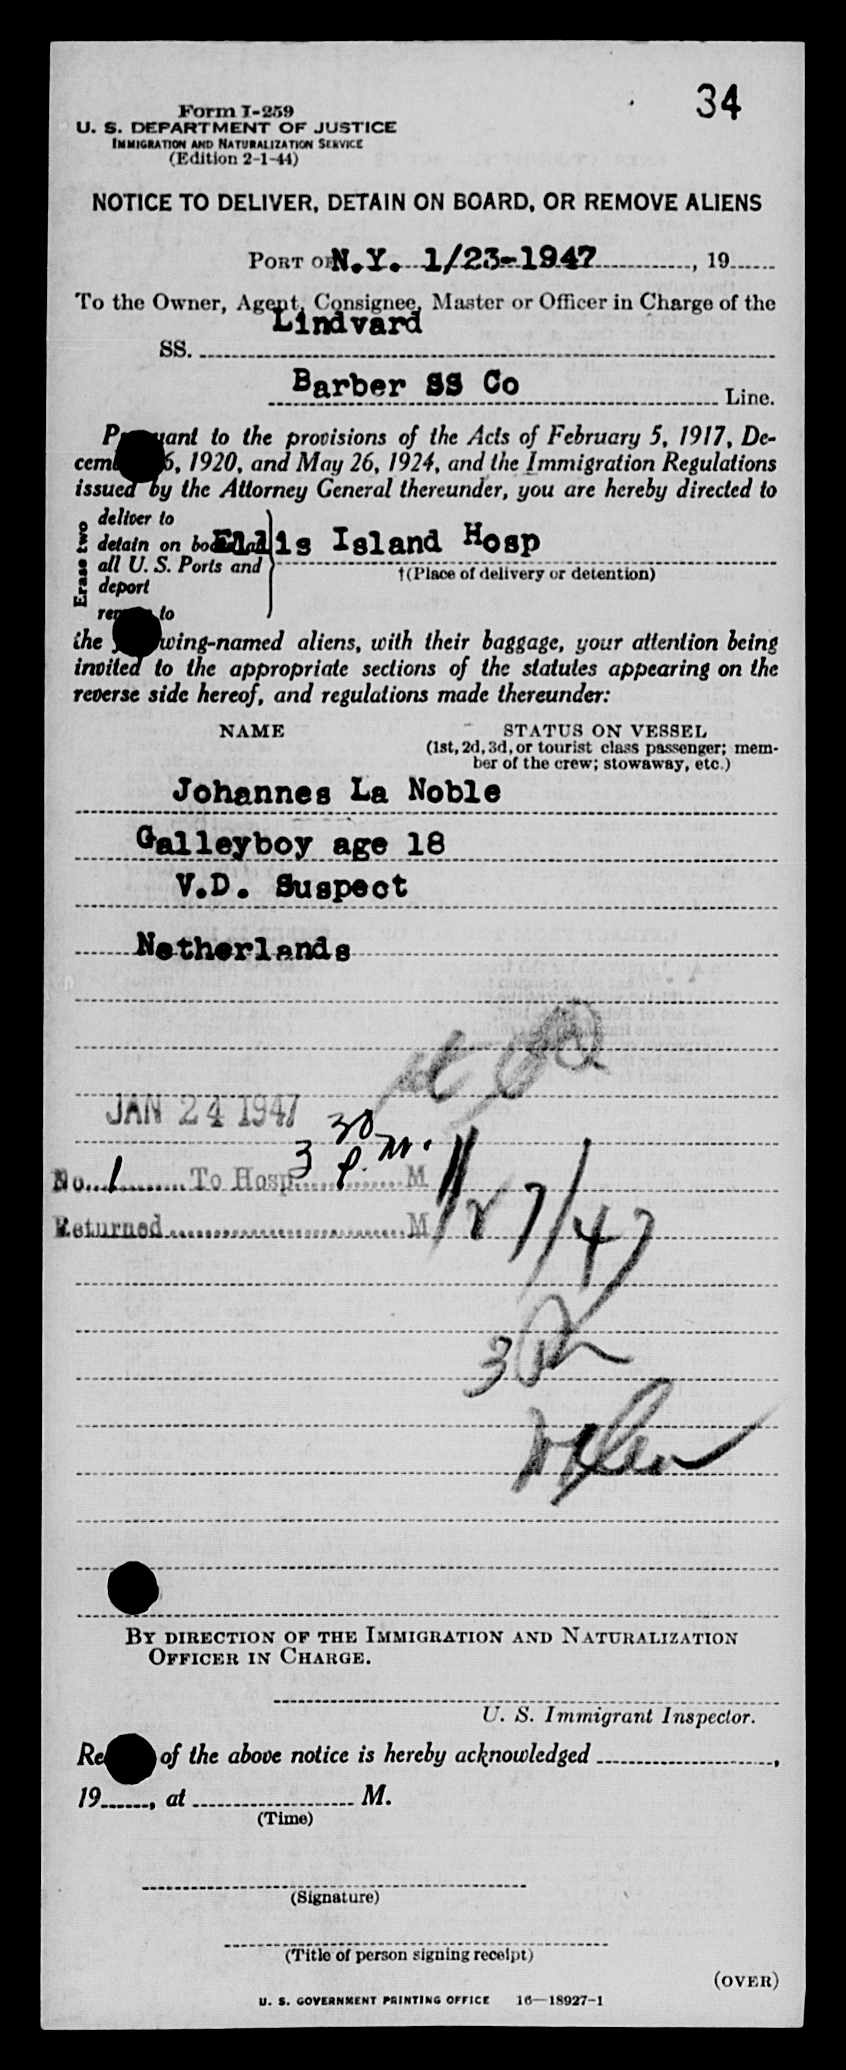 34
Form I-259
U. S. DEPARTMENT OF JUSTICE
IMMIGRATION AND NATURALIZATION SERVICE
(Edition 2-1-44)
NOTICE TO DELIVER, DETAIN ON BOARD, OR REMOVE ALIENS
PORT OF N.Y. 1/23-1947, 19
To the Owner, Agent, Consignee, Master or Officer in Charge of the
Lindvard
SS.
Barber SS Co Line.
to the provisions of the Acts of February 5, 1917, De-
1920, and May 26, 1924, and the Immigration Regulations
issued by the Attorney General thereunder, you are hereby directed to
Erase two
deliver to
detain on Ellis Island Hosp
all U. S. Ports and
†(Place of delivery or detention)
deport
to
the aliens, with their baggage, your attention being
invited to the appropriate sections of the statutes appearing on the
reverse side hereof, and regulations made thereunder:
NAME STATUS ON VESSEL
(1st, 2d, 3d, or tourist class passenger; mem-
ber of the crew; stowaway, etc.)
Johannes La Noble
Galleyboy age 18
V.D. Suspect
Netherlands
JAN 24 1947
No. 1 To Hosp. 3 30 P.M. M
Returned M
1/27/47
BY DIRECTION OF THE IMMIGRATION AND NATURALIZATION
OFFICER IN CHARGE.
U. S. Immigrant Inspector.
of the above notice is hereby acknowledged ,
19 , at M.
(Time)
(Signature)
(Title of person signing receipt)
(OVER)
U. S. GOVERNMENT PRINTING OFFICE 16—18927-1